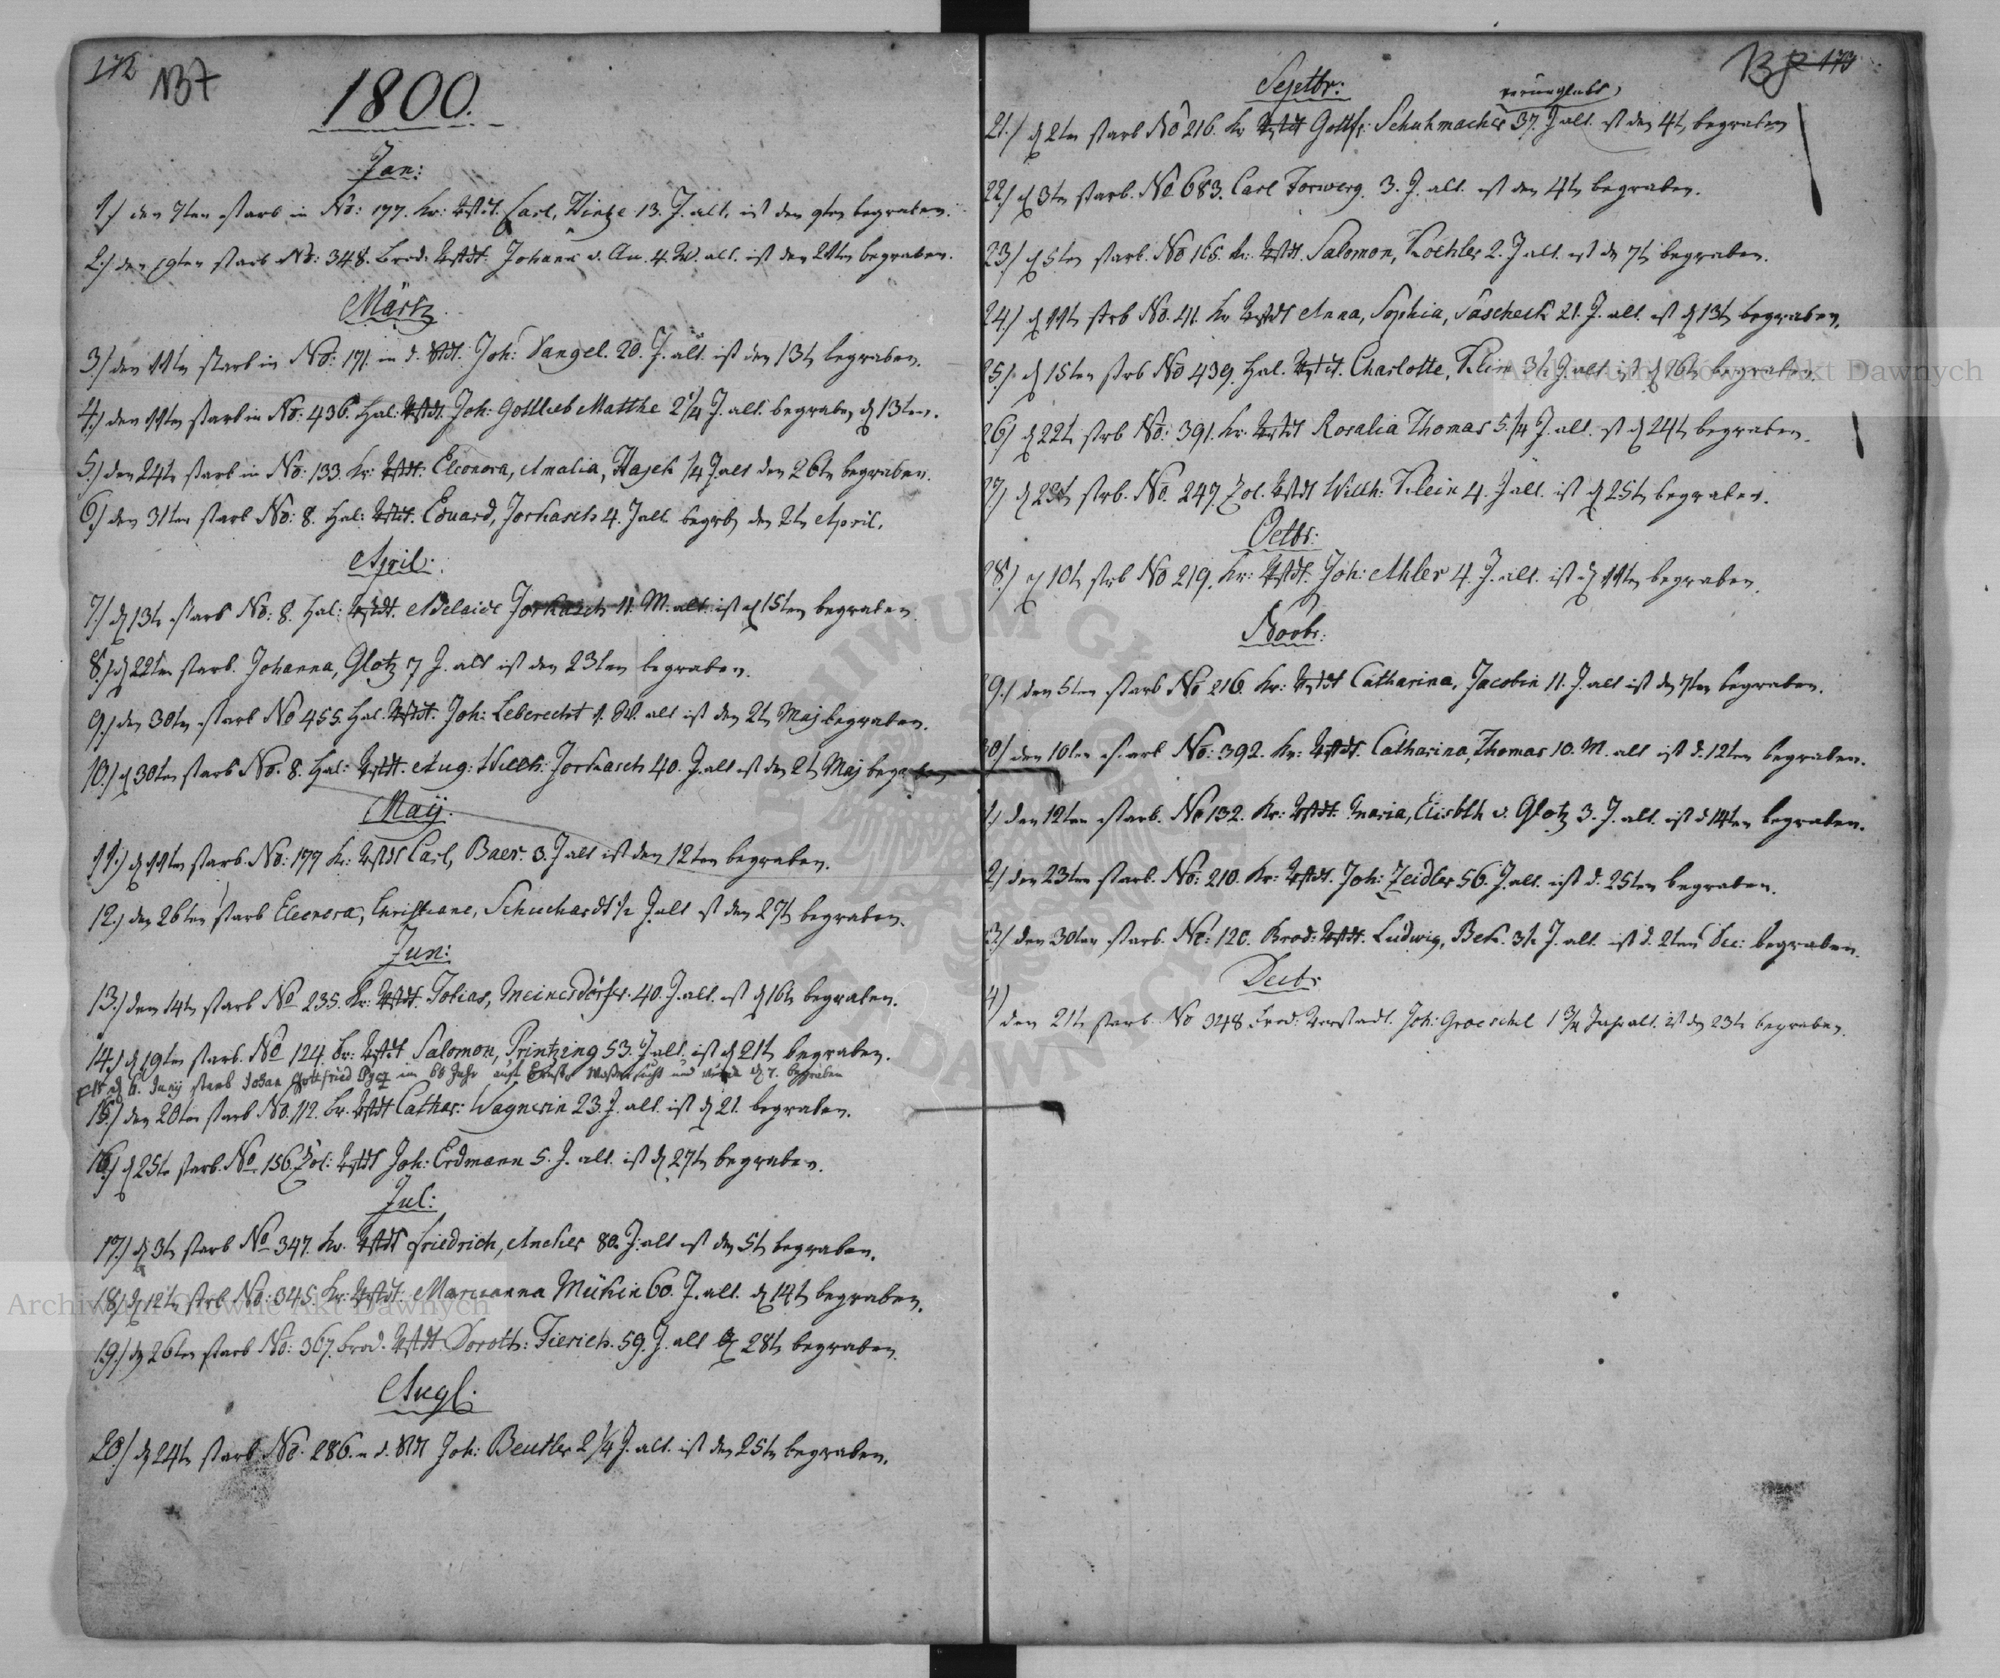 172
137
1800.
Jan:
1.) den 7ten starb in No: 177. Kr: Vstdt. Carl, Hintze 13. J. alt, ist den 9ten begraben.
2.) den 19ten starb No: 348. Brod: Vstdt. Johann v. Au. 4. W. alt. ist den 21ten begraben.
Märtz
3.) den 11ten starb in No: 171. in d. Stdt. Joh: Vangel. 20. J. alt. ist den 13t begraben.
4.) den 11ten starb in No: 436. Hal: Vstdt. Joh: Gottlieb Matthe 2 1/4 J. alt. begraben d 13ten.
5.) den 24t starb in No: 133. Kr: Vstdt. Eleonora, Amalia, Hajek 1/4 J alt den 26t begraben.
6.) den 31ten starb No: 8. Hal: Vstdt. Eduard, Jorkasch 4. J alt. begrb den 2t April.
April:
7.) d 13t starb No: 8. Hal: Vstdt. Adelaide Jorkasch 11. M. alt. ist d 15ten begraben.
8.) d 22ten starb. Johanna, Glotz 7 J. alt ist den 23ten begraben.
9.) den 30ten starb No 455. Hal. Vstdt. Joh: Leberecht 1. W. alt ist den 2t Maj begraben.
10.) d 30ten starb No. 8. Hal: Vstdt. Aug: Willh: Jorkasch 40. J. alt ist den 2t Maj begraben
Maij.
11.) d 11ten starb. No: 177 Kr: Vstdt Carl, Baer. 3. J alt ist den 12ten begraben.
12.) den 26ten starb Eleonora, Christiane, Schuchardt 1/2 J. alt ist den 27t begraben.
Jun:
13.) den 14t starb No 235. Kr: Vstdt. Tobias, Meinersdörfer. 40. J. alt. ist d 16t begraben.
14.) d 19ten starb. No 124. Br: Vstdt Salomon, Printzing 53. J alt. ist d 21t begraben.
d 6. Junij starb Johan Gottfried im 66 Jahr Wassersucht und wurde d 7. begraben
15.) den 20ten starb No. 112. Br. Vstdt Cathar: Wagnerin 23. J. alt. ist d 21. begraben.
16.) d 25t starb. No 156. Zol: Vstdt Joh: Erdmann 5. J. alt. ist d 27t begraben.
Jul:
17.) d 3t starb No 347. Kr. Vstdt Friedrich, Ancker 80. J: alt ist den 5t begraben.
18.) d 12t strb No: 345. Kr: Vstdt. Marianna Mükin 60. J. alt. d 14t begraben.
19.) d 26ten starb No: 367. Brod. Vstdt Doroth: Fierich. 59. J. alt d 28t begraben.
Augl:
20.) d 24t starb No. 286. in d. Stdt Joh: Beutler 2 1/4 J. alt. ist den 25t begraben.
138 173
Septbr:
verunglückt
21.) d 2ten starb No 216. Kr Vstdt Gottfr: Schuhmacher 37. J alt. ist den 4t begraben
22.) d 3ten starb. No 683. Carl Vorwerg. 3. J. alt. ist den 4t begraben.
23.) d 5ten starb. No 165. Kr. Vstdt. Salomon, Koehler 2. J alt. ist d 7t begraben.
24.) d 11t strb No. 41. Kr Vstdt Anna, Sophia, Sascheck 21. J. alt. ist d 13t begraben.
25.) d 15ten strb No 439. Hal. Vstdt. Charlotte, Klein 3 1/2 J alt ist d 16t begraben.
26.) d 22t strb No: 391. Kr. Vstdt Rosalia Thomas 5 1/4 J. alt. ist d 24t begraben.
27.) d 23t strb. No. 247. Zol. Vstdt Willh: Klein 4. J alt. ist d 25t begraben.
Octbr:
28.) d 10t strb No 219. Kr: Vstdt. Joh: Ahler 4. J. alt. ist d 11ten begraben.
Novbr:
29.) den 5ten starb No 216. Kr: Vstdt Catharina, Jacobin 11. J. alt ist den 7ten begraben.
30.) den 10ten starb No: 392. Kr: Vstdt. Catharina, Thomas 10. M. alt ist d. 12ten begraben.
1.) den 12ten starb. No 132. Kr: Vstdt. Maria, Elisbth v. Glotz 3. J. alt. ist d 14ten begraben.
2.) den 23ten starb. No: 210. Kr: Vstdt. Joh: Zeidler 56. J. alt. ist d. 25ten begraben.
3.) den 30ten starb. No: 120. Brod: Vstdt. Ludwig, Bek. 3 1/2 J. alt. ist d. 2ten Dec: begraben.
Decbr
4.) den 21t starb No 348 Brod: Vorstadt. Joh: Groeschel 1 3/4 Jahr alt. ist den 23t begraben.
Archiwum Główne Akt Dawnych
Archiwum Główne Akt Dawnych
ARCHIWUM GŁÓWNE AKT DAWNYCH